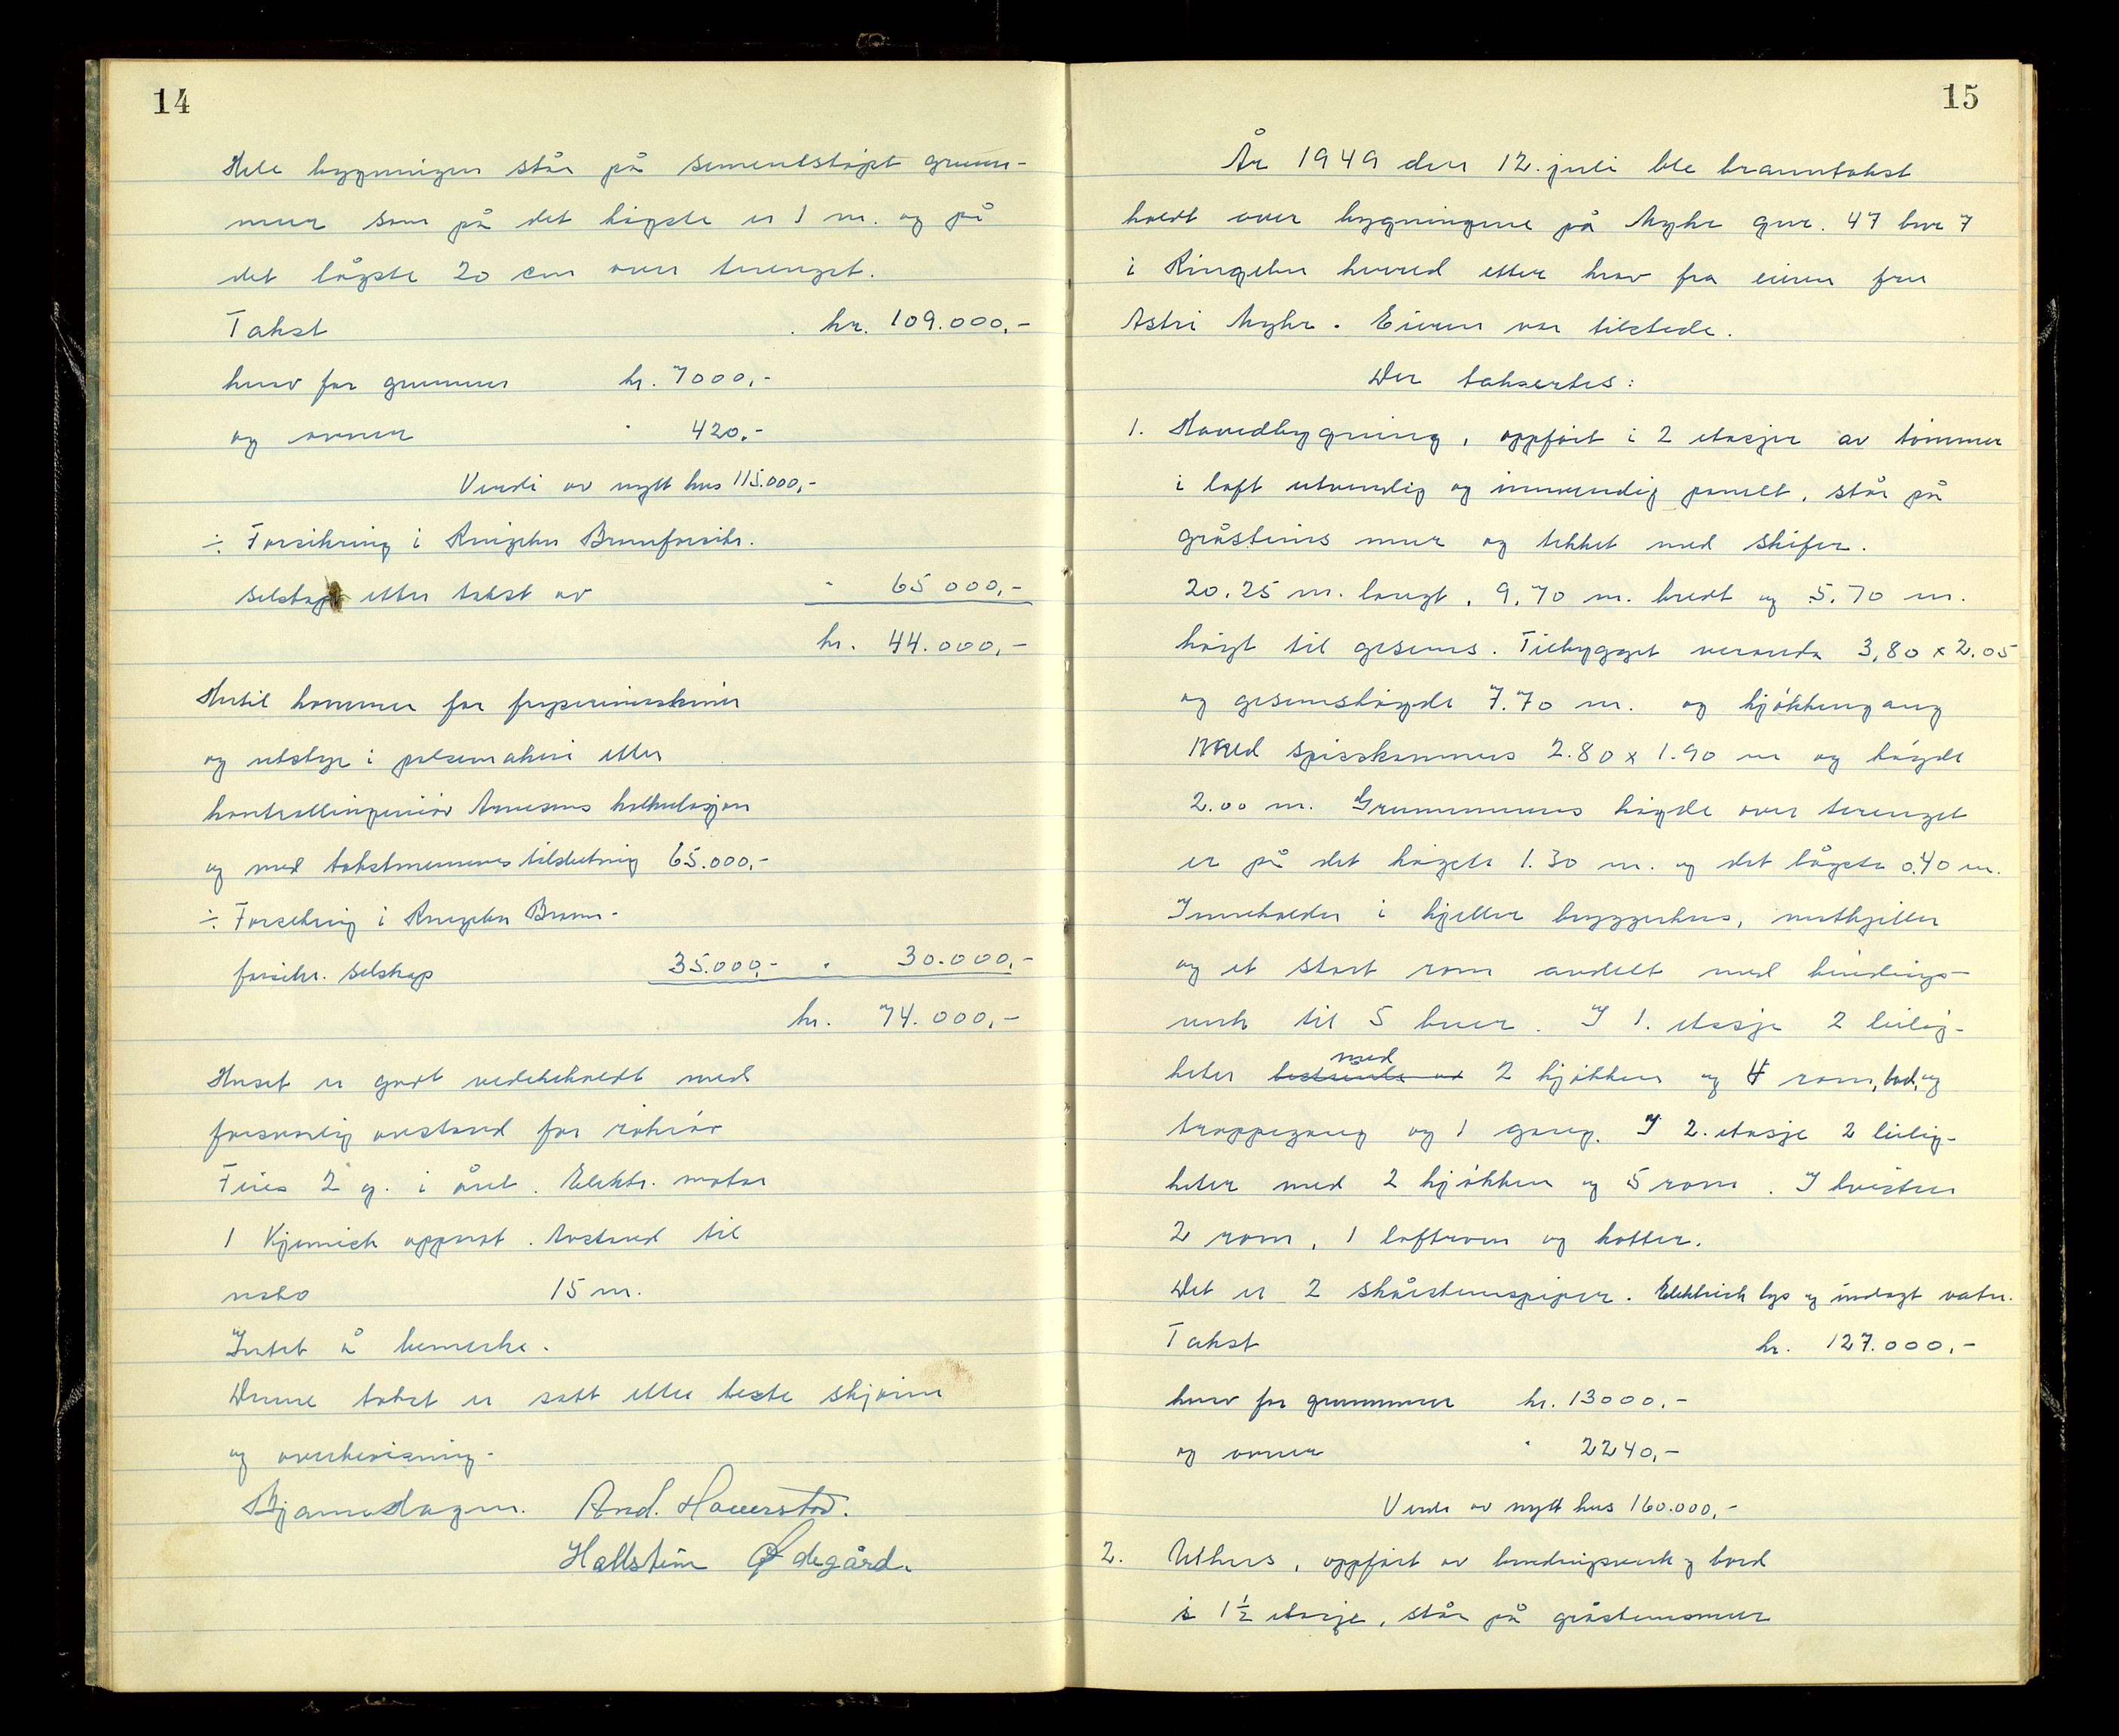 14
Hele bygningen står på sementstøpt grunn-
mur som på det høgste er 1 m. og på
det lågste 20 cm over terenget.
Takst kr. 109.000,-
herav for grunnmur kr. 7000,-
og ovner " 420,-
Verdi av nytt hus 115.000,-
÷ Forsikring i Ringebu Brannforsikr.
selskap etter takst av " 65 000,-
kr. 44.000,-
Hertil kommer for fryserimaskiner
og utstyr i pølsemakeri etter
kontrollingeniør Arnesens kalkulasjon
og med takstmennenes tilslutning 65.000,-
÷ Forsikring i Ringebu Brann-
forsikr. selskap 35.000,- " 30.000,-
kr. 74.000,-
Huset er godt vedlikeholdt med
forsvarlig avstand for røkrør
Feies 2 g. i året. Elektr. motor
1 Kjemisk apparat. Avstand til
nabo 15 m.
Intet å bemerke.
Denne takst er satt etter beste skjønn
og overbevisning.
And. Haverstad.
Hallstein Ødegård.
15
År 1949 den 12. juli ble branntakst
holdt over bygningene på Myhr gnr. 47 bnr 7
i Ringebu herred etter krav fra eieren fru
Astri Myhr. Eieren var tilstede.
Der taksertes:
1. Hovedbygning, oppført i 2 etasjer av tømmer
i loft utvendig og innvendig panelt, står på
gråsteins mur og tekket med skifer.
20.25 m. langt, 9.70 m. bredt og 5.70 m.
høgt til gesems. Tilbygget veranda 3,80 x 2.05
og gesemshøgde 7.70 m. og kjøkkengang
med spisskammers 2.80 x 1.90 m og høgde
2.00 m. Grunnmurens høgde over terenget
er på det høgste 1.30 m. og det lågste 0.40 m.
Inneholder i kjeller bryggerhus, matkjeller
og et stort rom avdelt med bindings-
verk til 5 buer. I 1. etasje 2 leilig-
heter bestående av med 2 kjøkken og 4 rom, bad, og
trappegang og 1 gang. I 2. etasje 2 leilig-
heter med 2 kjøkken og 5 rom. I kvisten
2 rom, 1 loftrom og kotter.
Det er 2 skårstenspiper. Elektrisk lys og innlagt vatn.
Takst kr. 127.000,-
herav for grunnmur kr. 13000,-
og ovner " 2240,-
Verdi av nytt hus 160.000,-
2. Uthus, oppført av bindingsverk og bord
i 1½ etasje, står på gråsteinsmur